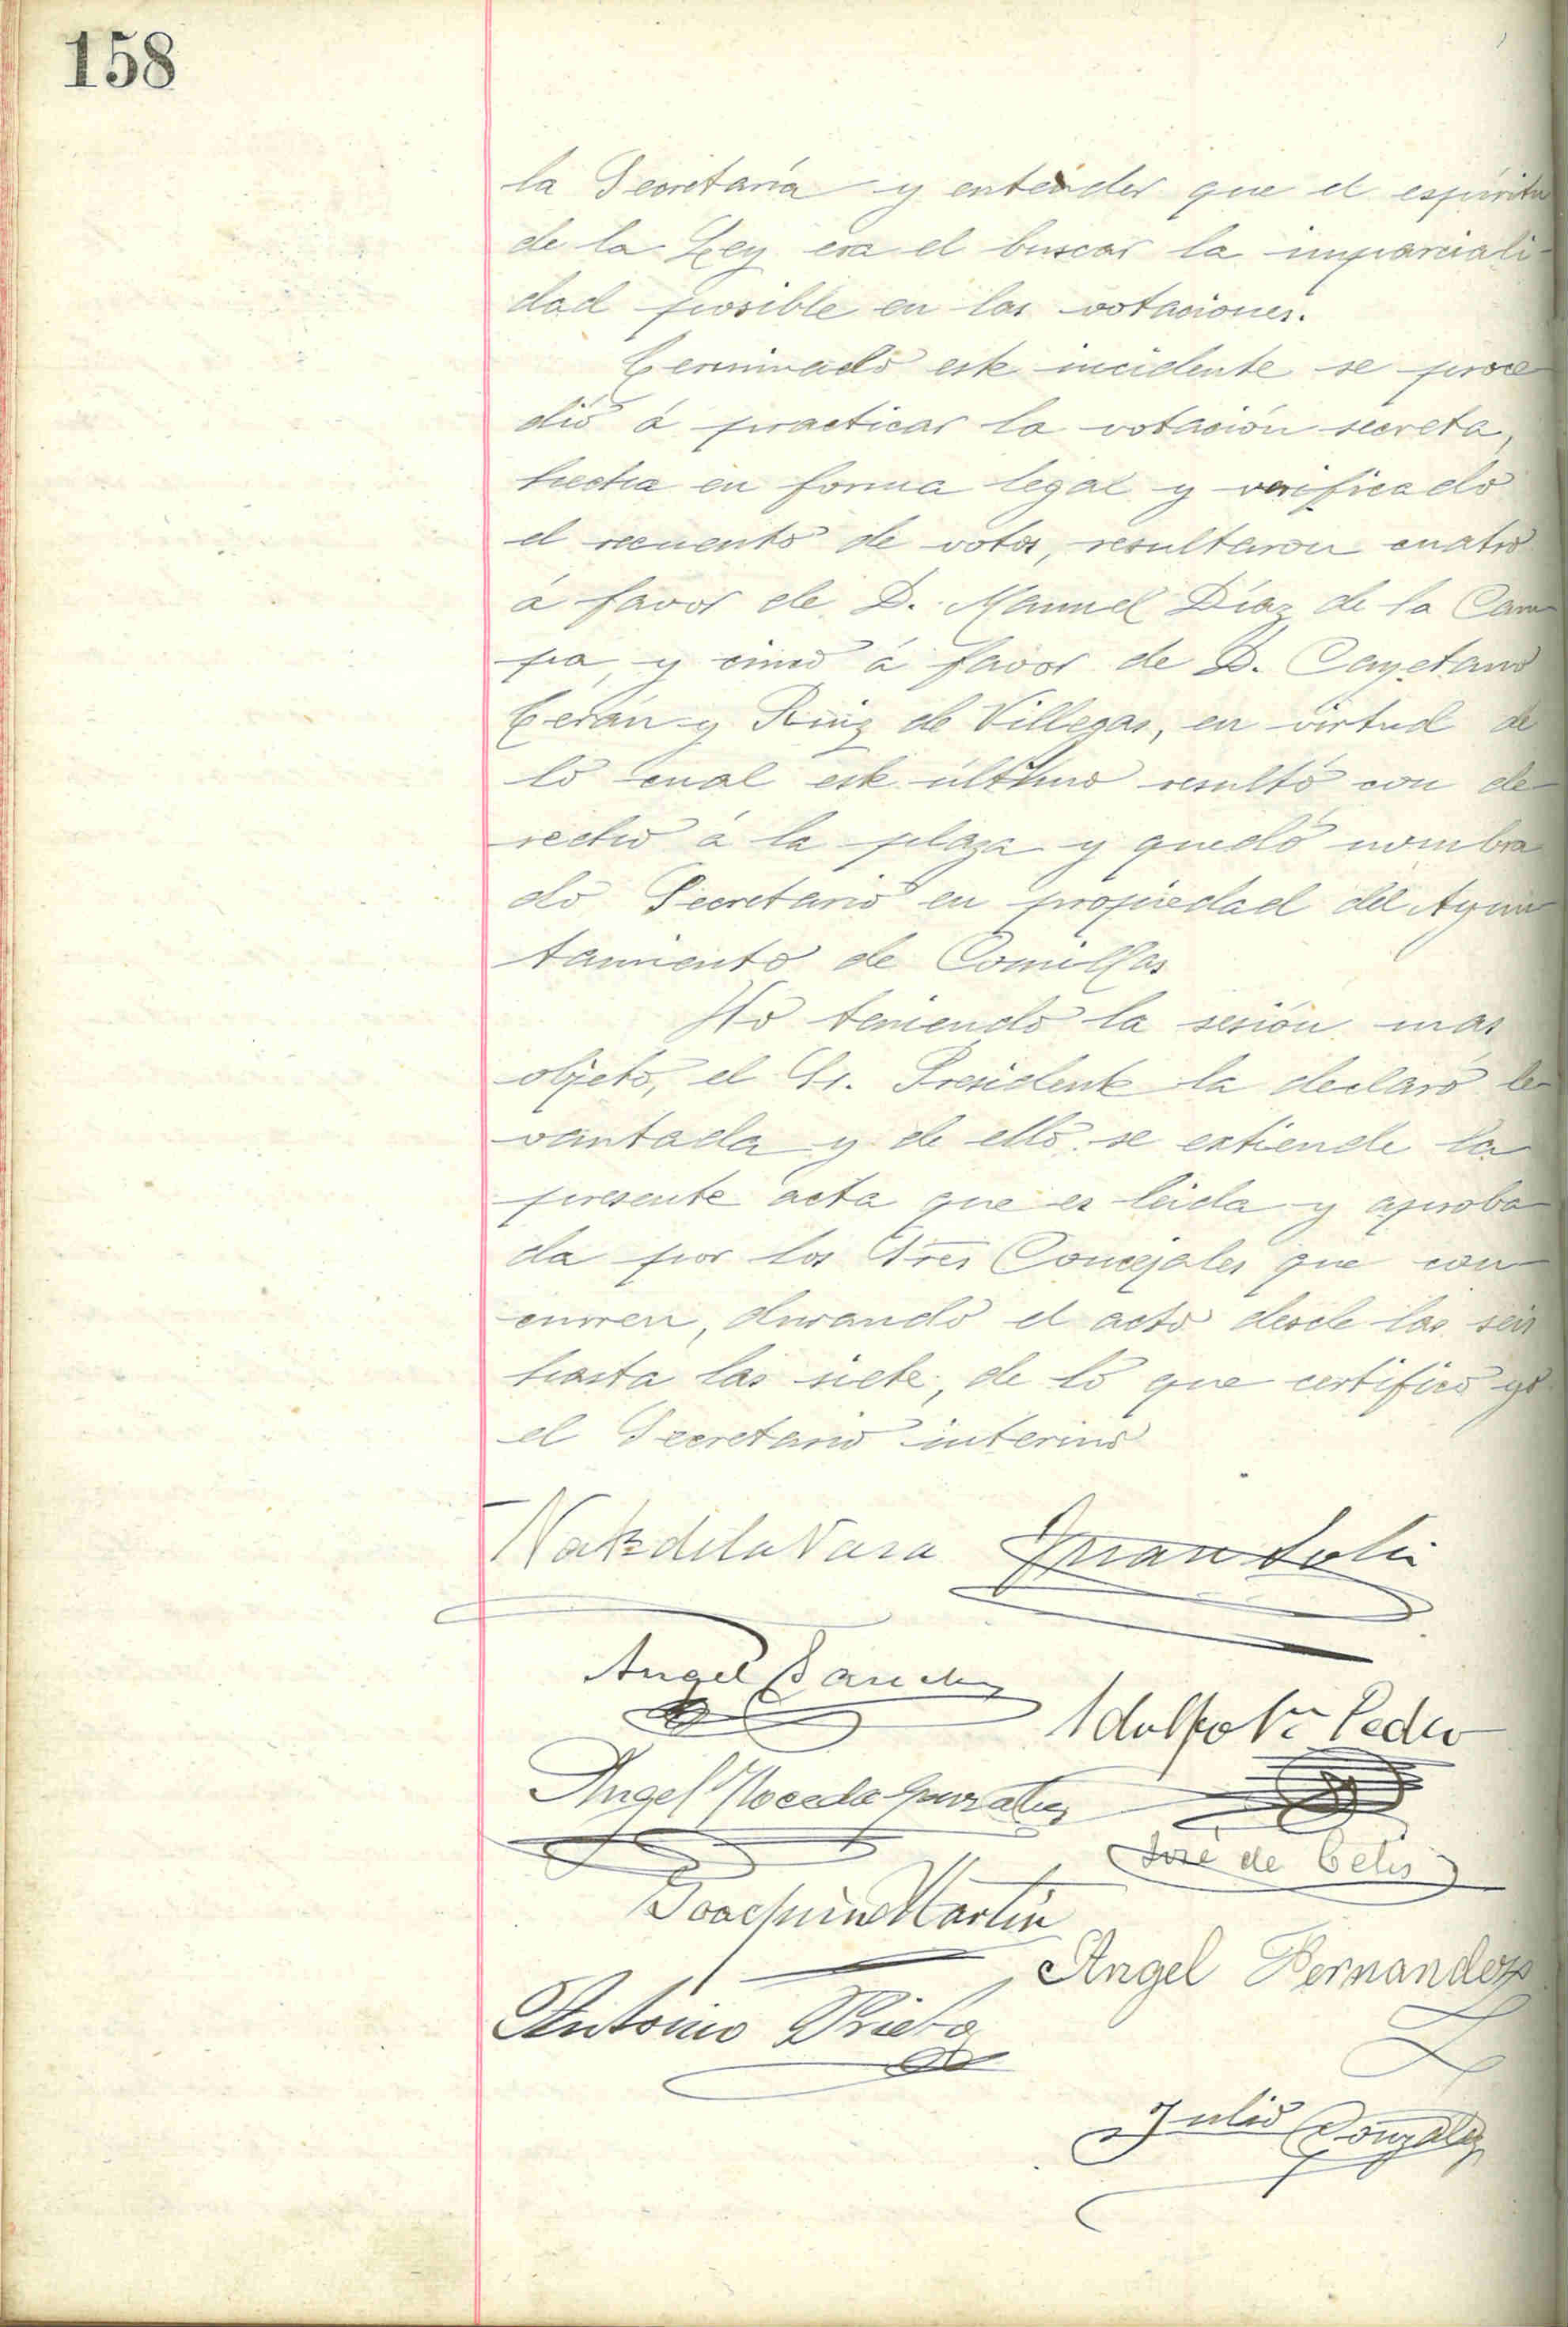 158
la Secretaría y entender que el espíritu
de la Ley era el buscar la imparciali-
dad posible en las votaciones.
Terminado este incidente se proce
dió á practicar la votación secreta,
hecha en forma legal y verificado
el recuento de votos, resultaron cuatro
á favor de D. Manuel Díaz de la Cam
pa, y cinco á favor de D. Cayetano
Terán y Ruiz de Villegas, en virtud de
lo cual este último resultó con de
recho á la plaza y quedó nombra
do Secretario en propiedad del Ayun
tamiento de Comillas
No teniendo la sesión mas
objeto, el Sr. Presidente la declaró le
vantada y de ello se extiende la
presente acta que es leida y aproba
da por los Sres Concejales que con
curren, durando el acto desde las seis
hasta las siete, de lo que certifico yo
el Secretario interino
de la Vara Juan
Angel Sanchez
Adolfo Pedro
Angel Noceda Gonzalez
José de Celis
Joachin Martin
Angel Fernandez
Antonio Prieto
Julio Gonzalez